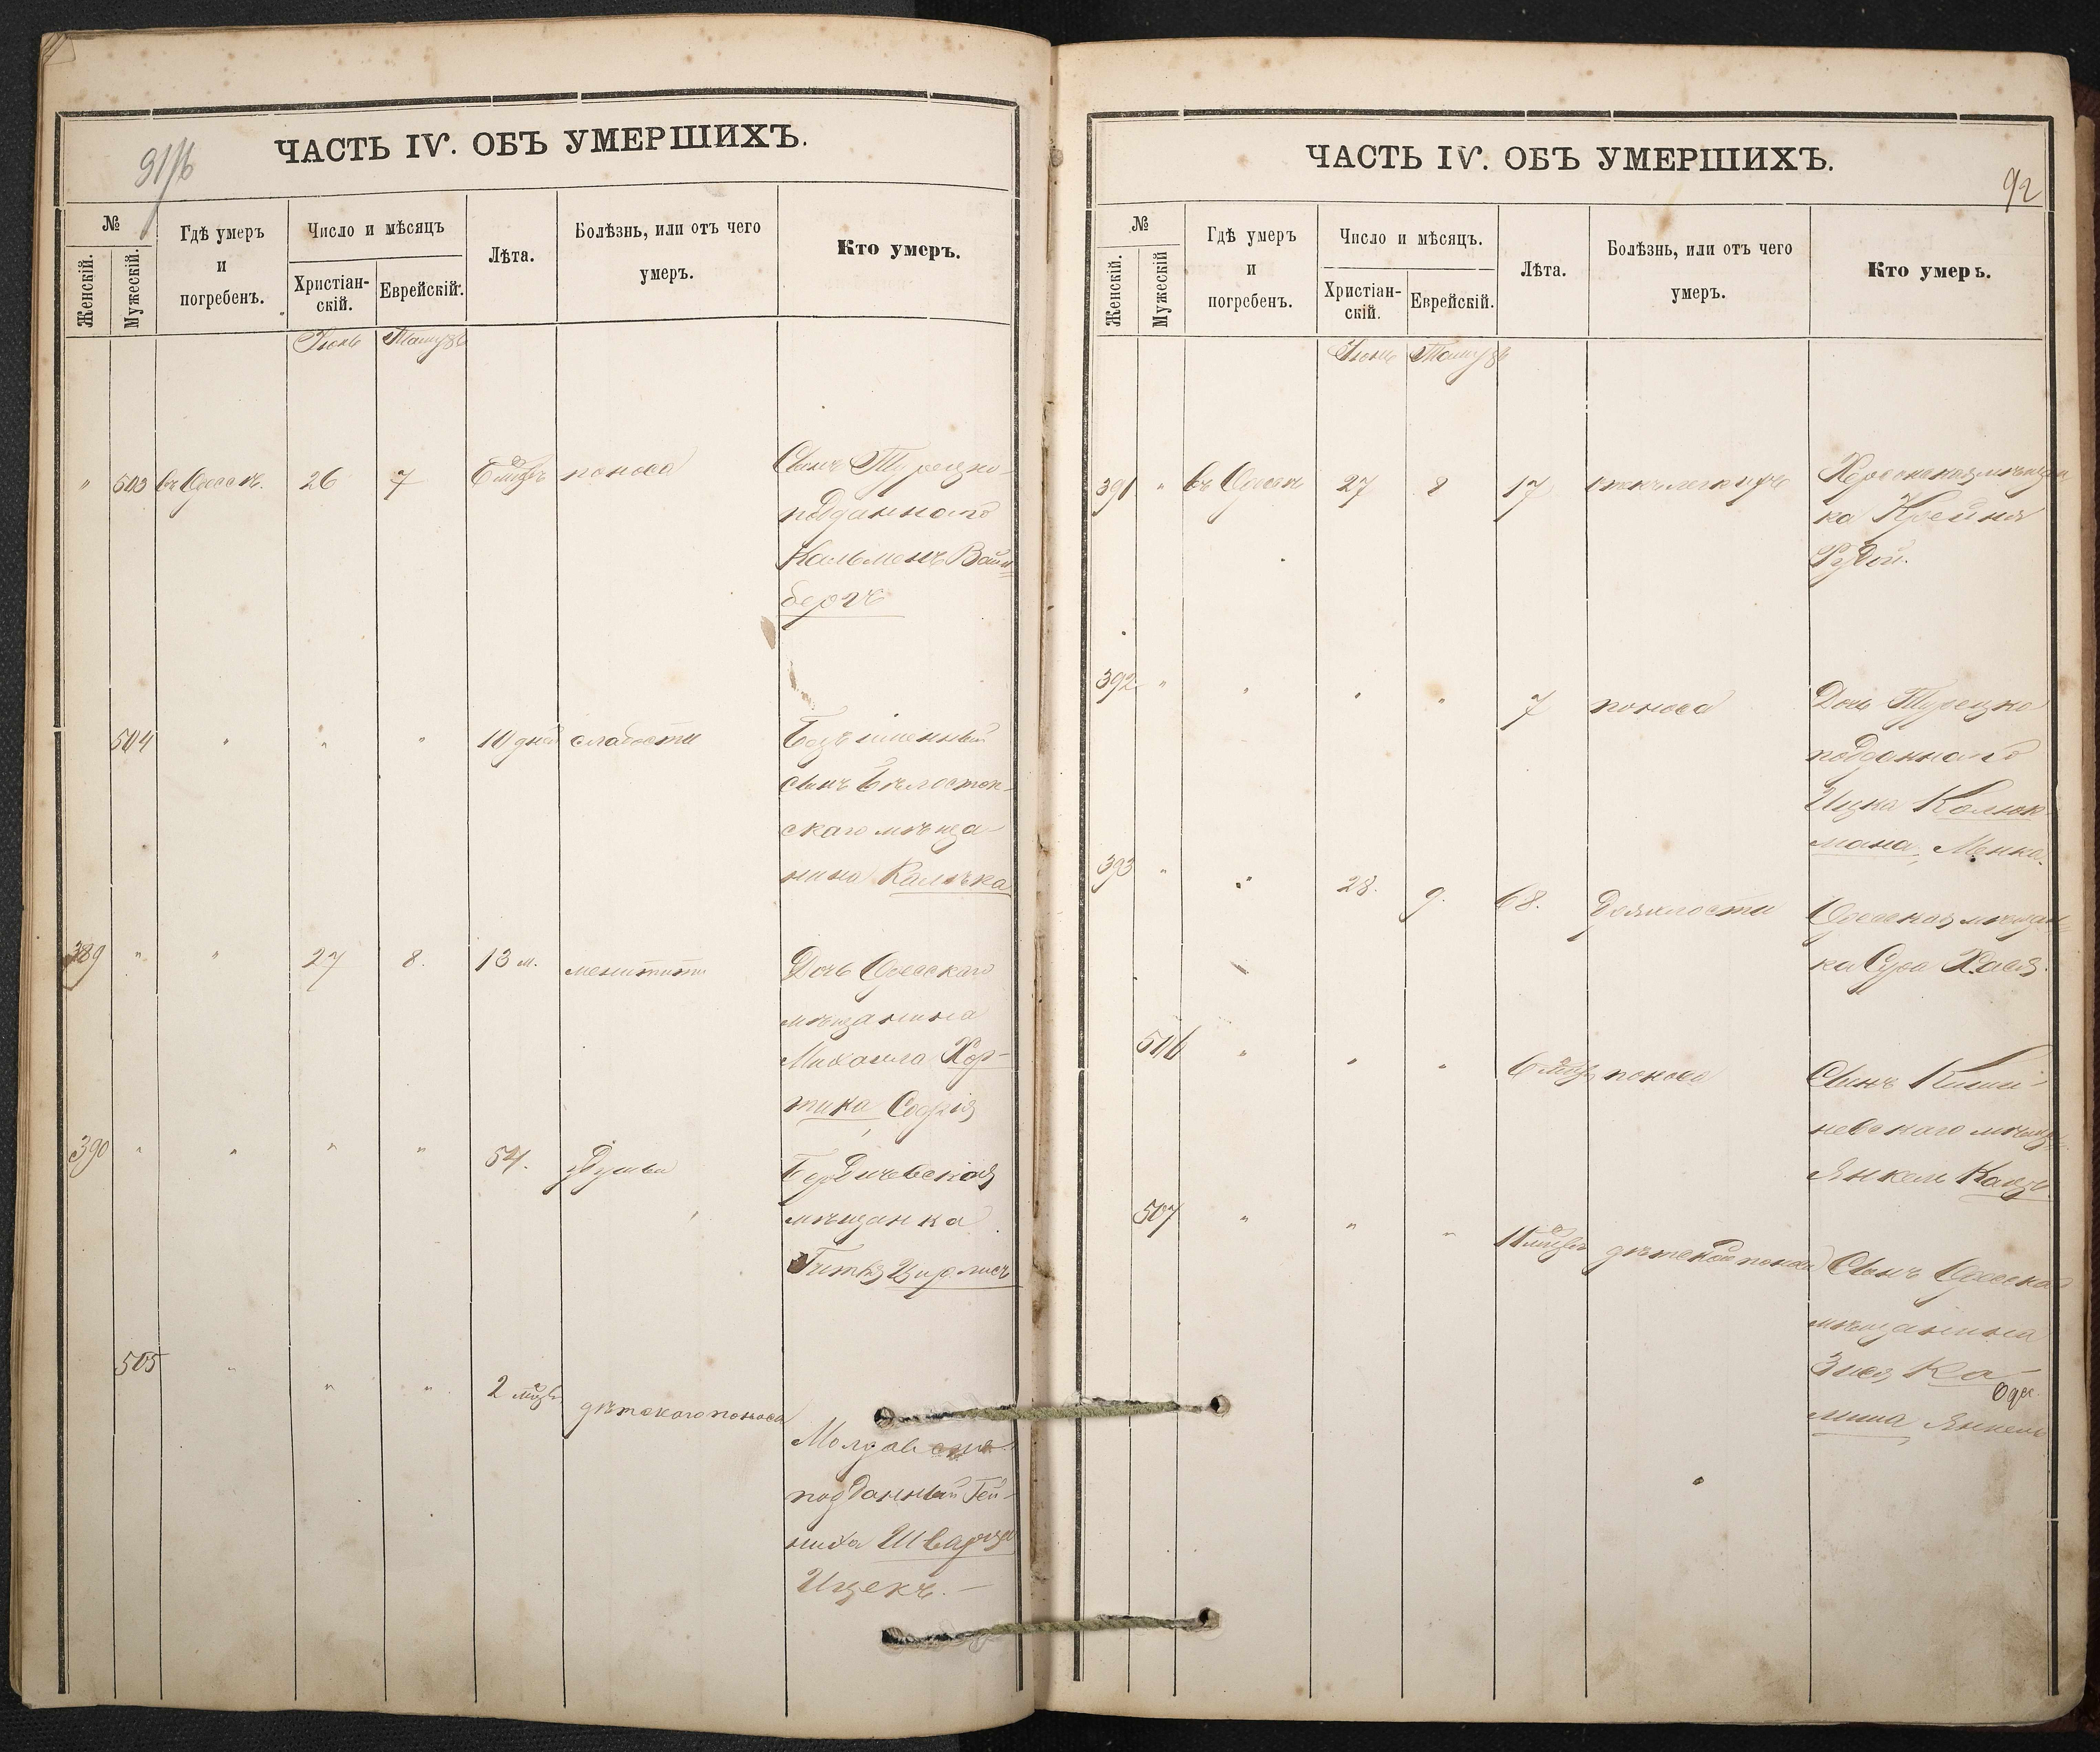 91/б
ЧАСТЬ IV. ОБЪ УМЕРШИХЪ.
№
Женскій.
Мужескій.
Гдѣ умеръ
и
погребенъ.
Число и мѣсяцъ
Христіан-
скій.
Еврейскій.
Лѣта.
Болѣзнь, или отъ чего
умеръ.
Кто умеръ.
Іюнь Тамузъ
" 503 въ Одессѣ. 26 7 6 мѣцъ поноса Сынъ Турецко-
подданнаго
Кальменъ Вайн=
бергъ
504 " " " 10 дней слабости Безъименный
сынъ Бѣлосток-
скаго мѣща-
нина
389 " " 27 8. 13 м. менигити Дочь Одесскаго
мѣщанина
Михаила Хор-
тика, Софія
390 " " " " 54. удушья Бердичевская
мѣщанка
Гитля
505 " " " 2 мѣца дѣтскаго поноса
Молдавск
подданный Гей-
ниха Шварца
Ицекъ. —
ЧАСТЬ IV. ОБЪ УМЕРШИХЪ.
92
№
Женскій.
Мужескій
Гдѣ умеръ
и
погребенъ.
Число и мѣсяцъ.
Христіан-
скій.
Еврейскій.
Лѣта.
Болѣзнь, или отъ чего
умеръ.
Кто умеръ.
Іюнь Тамузъ
391 " въ Одессѣ 27 8 17 Херсонская мѣщан
ка Крейня
Рудой.
392 " " " " 7 поноса Дочь Турецко
подданнаго
Ицка
мана, Менка.
393 " " 28. 9. 68. Дряхлости Одесская мѣщан=
ка Сура Хася.
506 " " " 6 мѣцъ поноса Сынъ Киши-
невскаго мѣщ
Янкель Кацъ.
507 " " " 11 мѣцевъ дѣтской поноса Сынъ Одесска
мѣщанина
Зися Ка-
Одес.
лина, Янкель